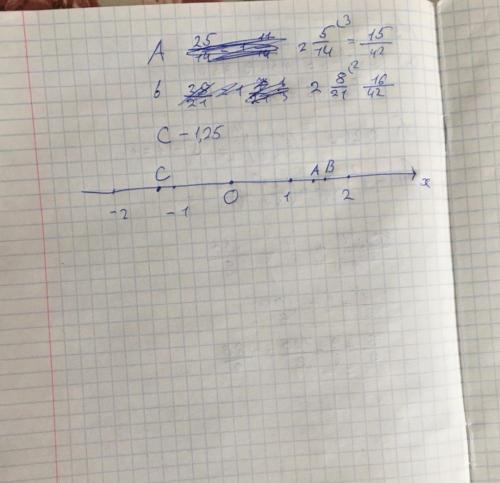 A 2 5/14 (3 = 15/42
b 2 8/21 (2 16/42
C -1,25
C A B
-2 -1 0 1 2 x